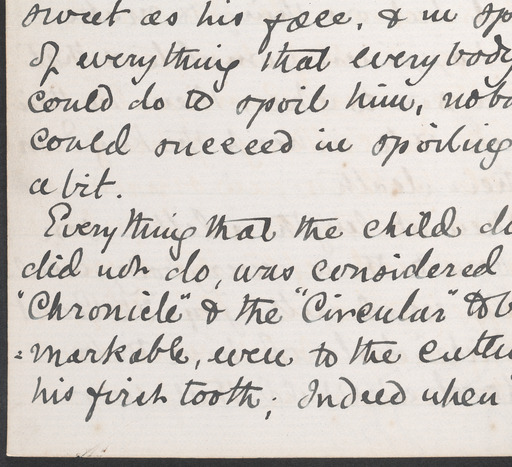 sweet as his face, & in sp
of everything that everybody
could do to spoil him, nobo
could succeed in spoiling
a bit.
Everything that the child d
did not do, was considered
"Chronicle" & the "Circular" to b
=markable, even to the cutti
his first tooth; Indeed when